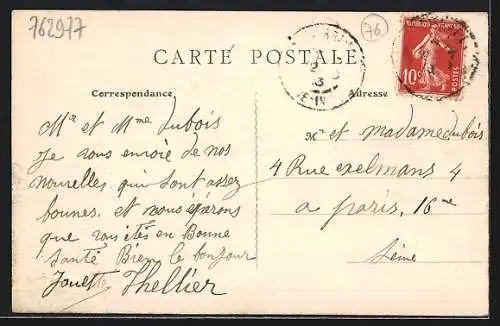 762977
76
CARTE POSTALE
REPUBLIQUE FRANÇAISE
10c
POSTES
2
3
E-IN
Correspondance
Adresse
Mr et Mme dubois
Je vous envoie de nos
nouvelles qui sont assez
bounes. et nous éspérons
que vous ètes en Bonne
Santé Bien le bonjour
Thellier
Mr et madame dubois
4 Rue exelmans 4
a paris. 16me
Seine